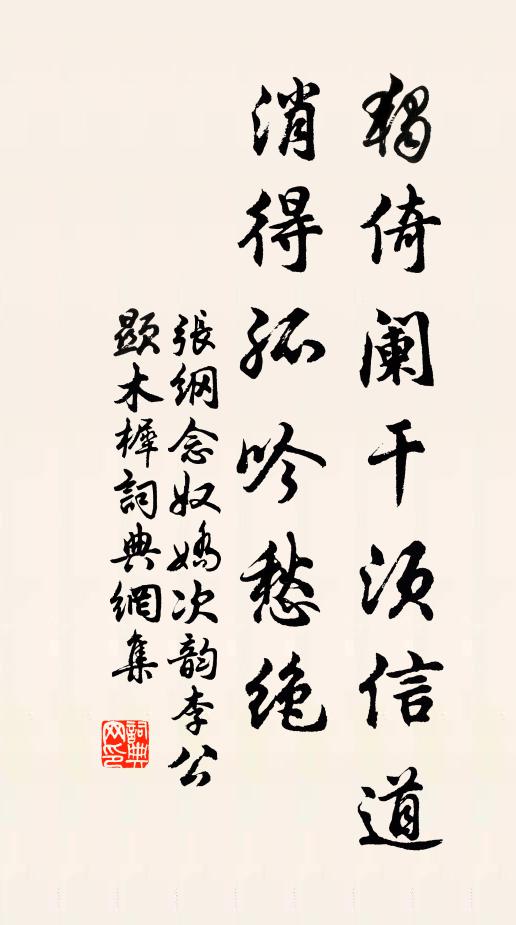 獨倚闌干須信道
消得孤吟愁絶
張綱念奴嬌次韵李公
顕木樨詞典網集
詞典网印